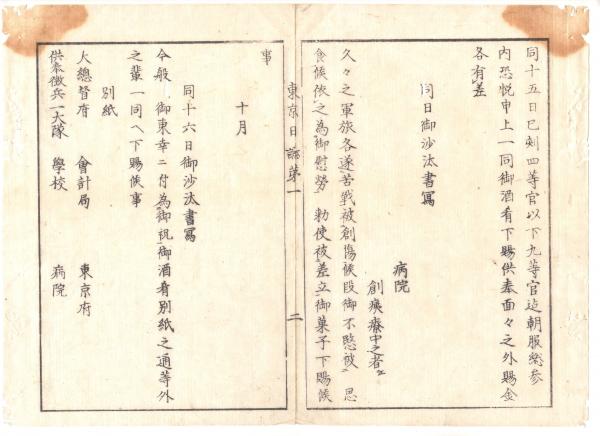 同十五日巳刻四等官以下九等官迄朝服ニ而参
内恐悦申上一同御酒肴下賜供奉面々之外賜金
各有差
同日御沙汰書寫
病院
創痍療中之者ヱ
久々之軍旅各遂苦戦被創傷候段御不愍被
思
食候依之為御慰勞
勅使被差立御菓子下賜候
東京日誌第一
二
事
十月
同十六日御沙汰書寫
今般
御東幸ニ付為御祝御酒肴別紙之通等外
之輩一同ヘ下賜候事
別紙
大總督府
會計局
東京府
供奉徴兵一大隊
學校
病院